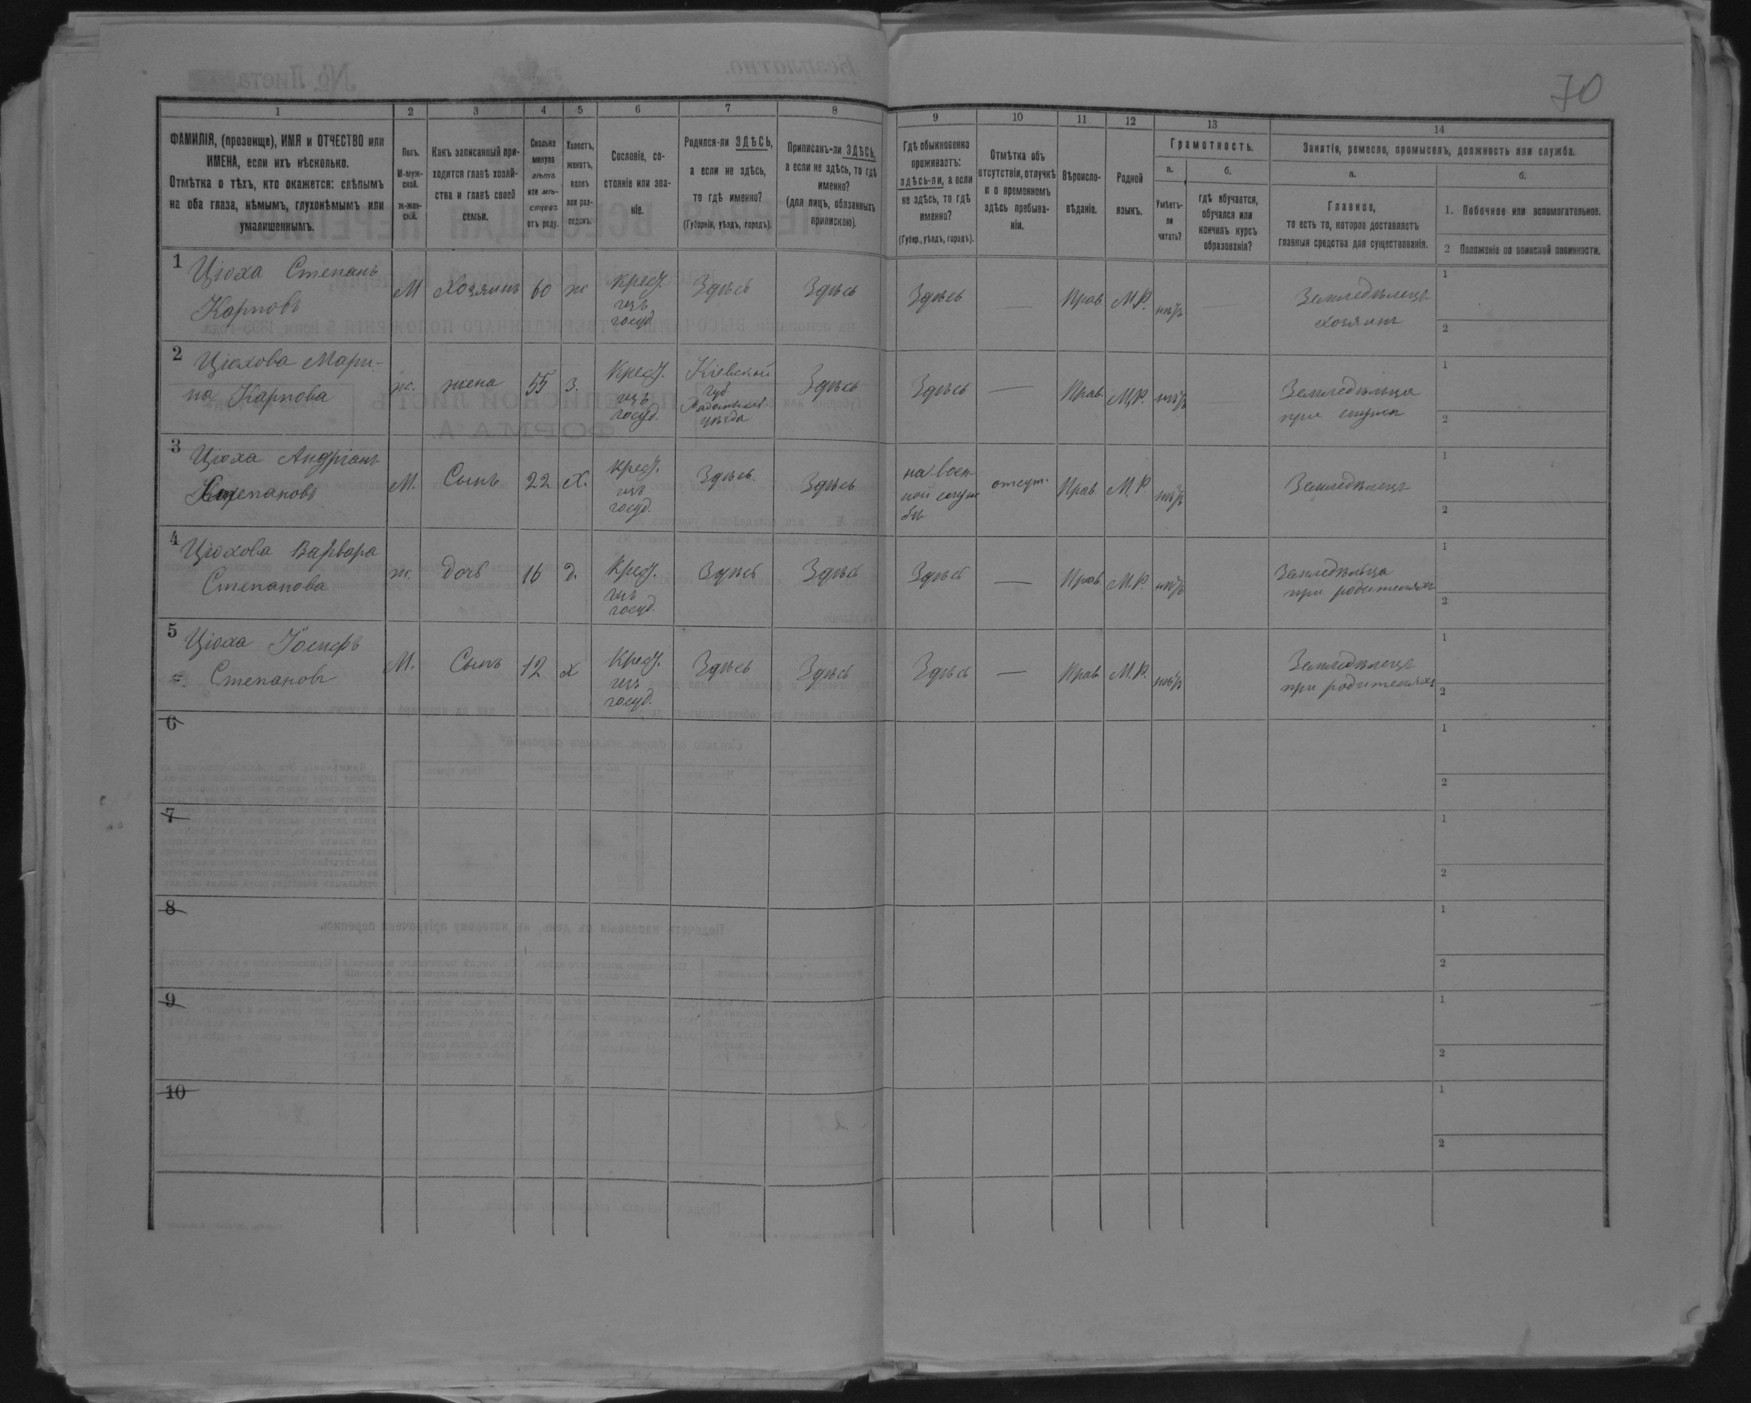 70
1
2
3
4
5
6
7
8
9
10
11
12
13
14
ФАМИЛІЯ, (прозвище), ИМЯ и ОТЧЕСТВО или
ИМЕНА, если ихъ нѣсколько.
Отмѣтка о тѣхъ, кто окажется: слѣпымъ
на оба глаза, нѣмымъ, глухонѣмымъ или
умалишеннымъ.
Полъ.
М-муж-
ской.
ж-жен-
скій.
Какъ записанный при-
ходится главѣ хозяй-
ства и главѣ своей
семьи.
Сколько
минуло
лѣтъ
или мѣ-
сяцевъ
отъ роду.
Холостъ,
женатъ,
вдовъ
или раз-
веденъ.
Сословіе, со-
стояніе или зва-
ніе.
Родился-ли ЗДѢСЬ,
а если не здѣсь,
то гдѣ именно?
(Губернія, уѣздъ, городъ).
Приписанъ-ли ЗДѢСЬ,
а если не здѣсь, то гдѣ
именно?
(для лицъ, обязанныхъ
припискою).
Гдѣ обыкновенно
проживаетъ:
здѣсь-ли, а если
не здѣсь, то гдѣ
именно?
(Губер., уѣздъ, городъ).
Отмѣтка объ
отсутствіи, отлучкѣ
и о временномъ
здѣсь пребыва-
ніи.
Вѣроиспо-
вѣданіе.
Родной
языкъ.
Грамотность.
а.
Умѣетъ-
ли
читать?
б.
гдѣ обучается,
обучался или
кончилъ курсъ
образованія?
Занятіе, ремесло, промыселъ, должность или служба.
а.
Главное,
то есть то, которое доставляетъ
главныя средства для существованія.
б.
1. Побочное или вспомогательное.
2 Положеніе по воинской повинности.
1 Цюха Степанъ
Карповъ
М Хозяинъ 60 ж
Крест.
изъ
госуд.
Здѣсь Здѣсь Здѣсь — Прав М.Р. нѣтъ —
Земледѣлецъ
хозяинъ
1
2
2 Цюхова Мари-
на Карпова
ж. жена 55 з.
Крест.
изъ
госуд.
Кіевской
губ
уѣзда
Здѣсь Здѣсь — Прав. М.Р. нѣтъ
Земледѣлица
при мужѣ
1
2
3 Цюха Андріанъ
Степановъ
М. Сынъ 22 х.
Крест.
изъ
госуд.
Здѣсь Здѣсь
на воен-
ной служ
бѣ
отсут. Прав М.Р. нѣтъ
Земледѣлецъ
1
2
4 Цюхова Варвара
Степанова
ж. дочь 16 д.
Крест.
изъ
госуд.
Здѣсь Здѣсь Здѣсь — Прав М.Р. нѣтъ
Земледѣлица
при родителяхъ
1
2
5 Цюха Іосифъ
Степановъ
М. Сынъ 12 х
Крест.
изъ
госуд.
Здѣсь Здѣсь Здѣсь — Прав М.Р. нѣтъ
Земледѣлецъ
при родителяхъ
1
2
6
1
2
7
1
2
8
1
2
9
1
2
10
1
2